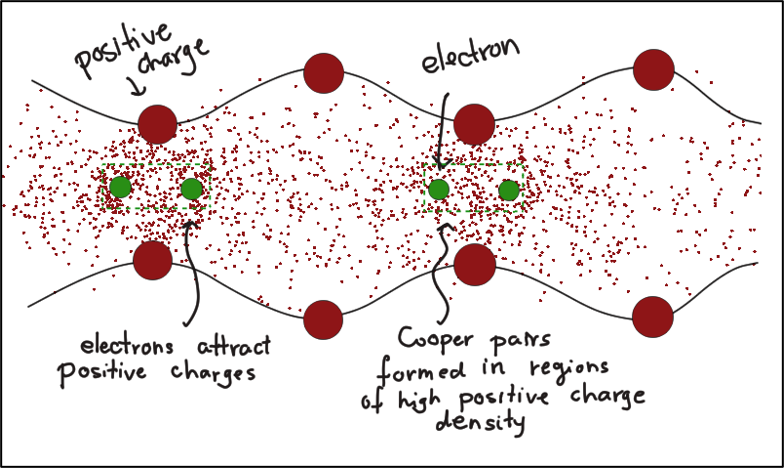 positive
charge
electron
electrons attract
positive charges
Cooper pairs
formed in regions
of high positive charge
density